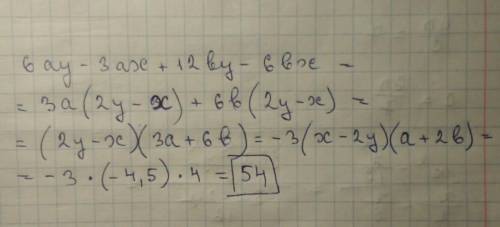 6ay - 3ax + 12by - 6bx =
= 3a(2y - x) + 6b(2y - x) =
= (2y - x)(3a + 6b) = -3(x - 2y)(a + 2b) =
= -3 · (-4,5) · 4 = 54